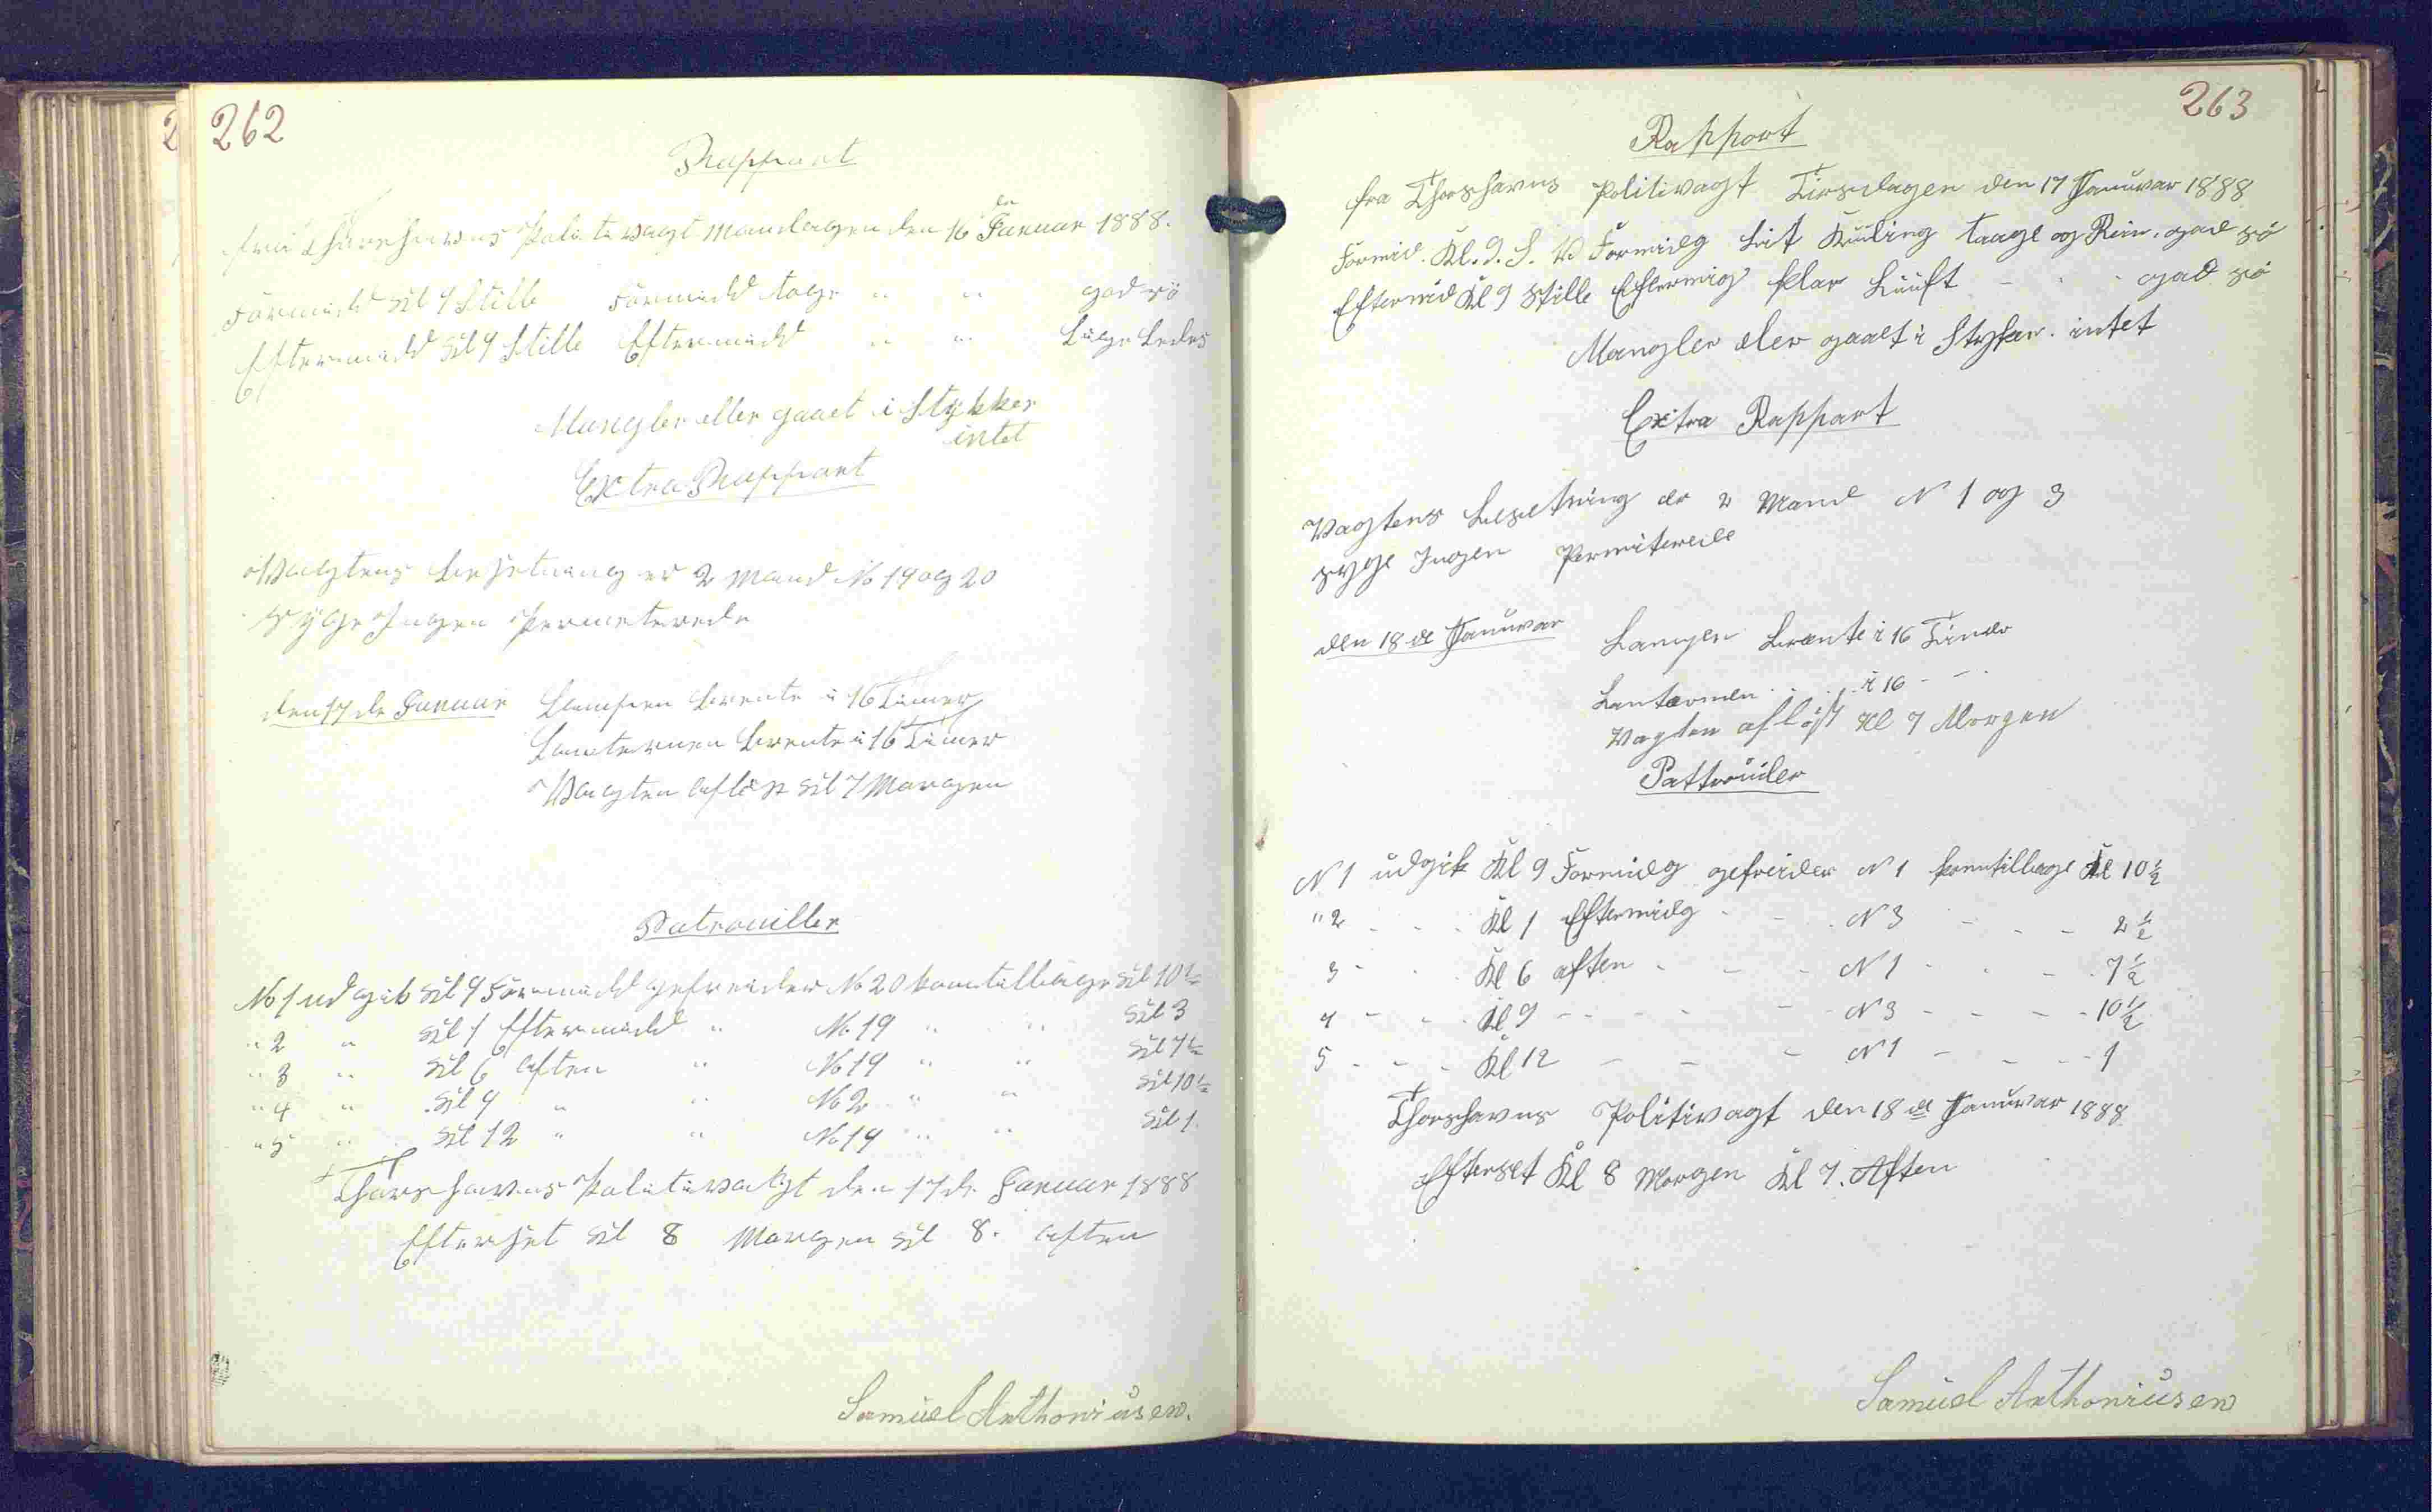 262
Rappart
fra Thorshavns Politivagt Mandagen den 16 de Januar 1888.
Formidd Kl 9 Stille Formidd tage " " god sö
Eftermidd Kl 9 Stille Eftermidd " " Lige Ledes
Mangler eller gaaet i Stykker
intet
Extra Rappart
Vagtens besetning er 2 Mand No 19 og 20
Syge Ingen Permeterede
den 17 de Januar Lampen brente i 16 Timer
Lanternen brente i 16 Timer
Vagten aflöst Kl 7 Morgen
Patrouiller
No 1 udgik Kl 9 Formidd gefreider No 20 kom tilbage Kl 10½
" 2 " Kl 1 Eftermidd " No 19 " " Kl 3
" 3 " Kl 6 Aften " No 19 " " Kl 7½
" 4 " Kl 9 " " No 2 " " Kl 10½
" 5 " Kl 12 " " No 19 " " Kl 1
Thorshavns Politivagt den 17 de Januar 1888
Efterset Kl 8 Morgen Kl 8. Aften
Samuel Anthoniusen.
263
Rapport
fra Thorshavns Politivagt Tirsdagen den 17 Januvar 1888
Formid. Kl. 9. S. V Formidg Lit Kuling taage og Rein. god sö
Eftermid Kl 9 Stille Eftermig klar Luuft - - - god sö
Mangler eler gaaet i Styker. intet
Extra Rappart
Vagtens besetning er 2 Mand N 1 og 3
syge Ingen Permiterede
den 18 de Januvar Lampen Brænte i 16 Timer
Lantærnen . . . i 16 - -
Vagten aflöst Kl 7 Morgen
Pattruiler
N 1 udgik Kl 9 Formidg gefreider N 1 kom tilbage Kl 10½
" 2 - - - Kl 1 Eftermidg - - - N 3 - - - 2½
3 - - - Kl 6 aften - - - N 1 - - - 7½
4 - - - Kl 9 - - - - N 3 - - - 10½
5 - - - Kl 12 - - - N 1 - - - 1
Thorshavns Politivagt den 18 de Januvar 1888
Efterset Kl 8 Morgen Kl 7. Aften
Samuel Anthoniusen